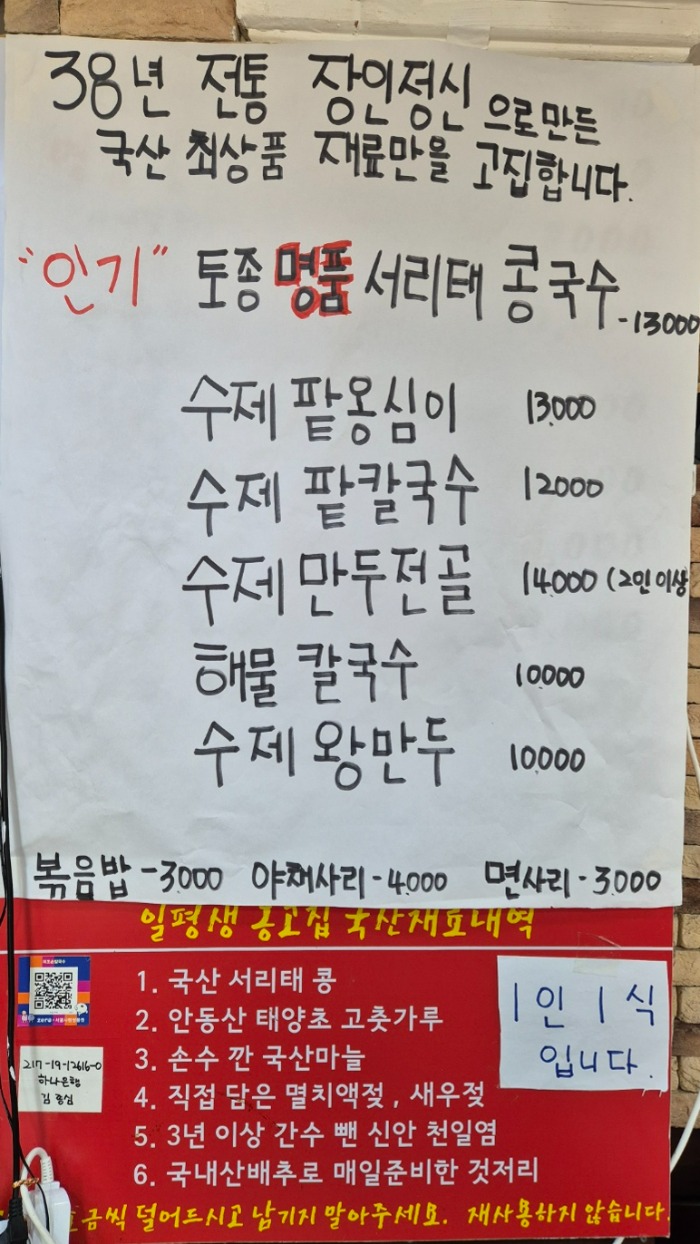 38년 전통 장인정신으로만든
국산 최상품 재료만을 고집합니다.
"인기" 토종 명품 서리태 콩국수 -13000
수제 팥옹심이 13,000
수제 팥칼국수 12000
수제 만두전골 14,000 (2인 이상
해물 칼국수 10,000
수제 왕만두 10,000
볶음밥 -3,000 야채사리 -4,000 면사리 -3,000
일평생 옹고집 국산재료내역
1. 국산 서리태 콩
2. 안동산 태양초 고춧가루
3. 손수 깐 국산마늘
4. 직접 담은 멸치액젖, 새우젖
5. 3년 이상 간수 뺀 신안 천일염
6. 국내산배추로 매일준비한 것저리
1인 1식
입니다.
217-19-12616-0
하나은행
김종심
조금씩 덜어드시고 남기지 말아주세요. 재사용하지 않습니다.